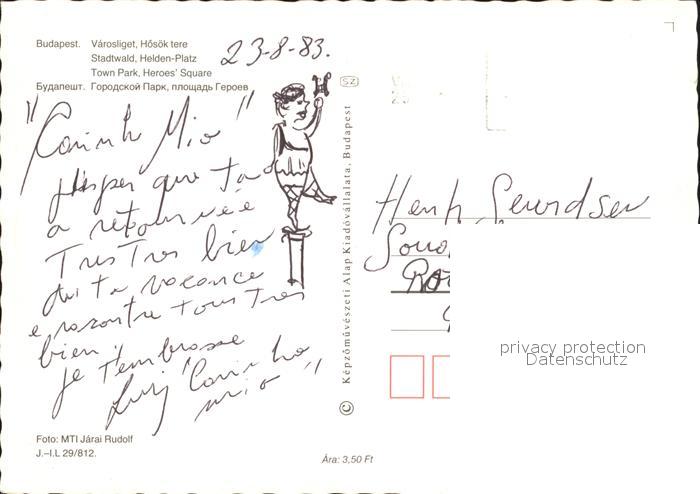 Budapest. Városliget, Hősök tere
Stadtwald, Helden-Platz
Town Park, Heroes' Square
Будапешт. Городской Парк, площадь Героев
23-8-83.
"Carinho Mio"
J'esper que ta
a retournéé
Tres Tres bien
di ta vacance
e raconte tous Tres
bien
Je t'embrasse
"Carinho
mio"
Foto: MTI Járai Rudolf
J.–I.L 29/812.
Ára: 3,50 Ft
SZ
© Képzőművészeti Alap Kiadóvállalata, Budapest
Henk
privacy protection
Datenschutz